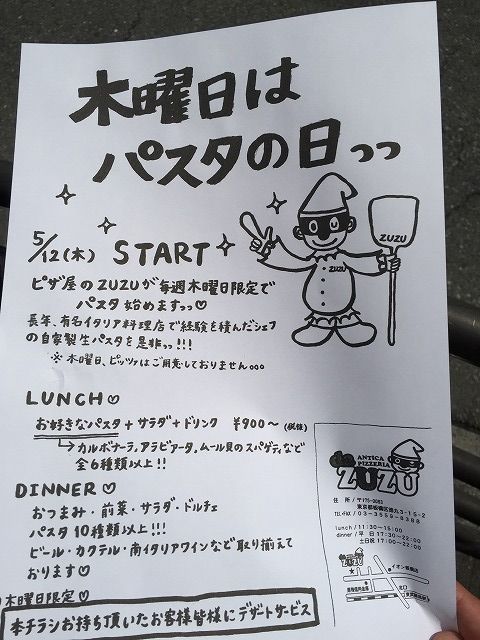 木曜日は
パスタの日っっ
5/12(木) START
ピザ屋のZUZUが毎週木曜日限定で
パスタ始めますっっ♡
長年、有名イタリア料理店で経験を積んだシェフ
の自家製生パスタを是非っっ!!!
※木曜日、ピッツァはご用意しておりません。。。
ZUZU
ZUZU
LUNCH♡
お好きなパスタ + サラダ + ドリンク ¥900〜 (税抜)
カルボナーラ、アラビアータ、ムール貝のスパゲティなど
全6種類以上!!
DINNER♡
おつまみ・前菜・サラダ・ドルチェ
パスタ10種類以上!!!
ビール・カクテル・南イタリアワインなど取り揃えて
おります♡
木曜日限定♡
本チラシお持ち頂いたお客様皆様にデザートサービス
da
ANTICA
PIZZERIA
ZUZU
住 所/〒175-0083
東京都板橋区徳丸3-15-2
TEL・FAX / 03-3559-8388
lunch / 11:30-15:00
dinner / 平 日 17:30-22:00
土日祝 17:00-22:00
ZUZU
イオン板橋店
北口
東武練馬駅